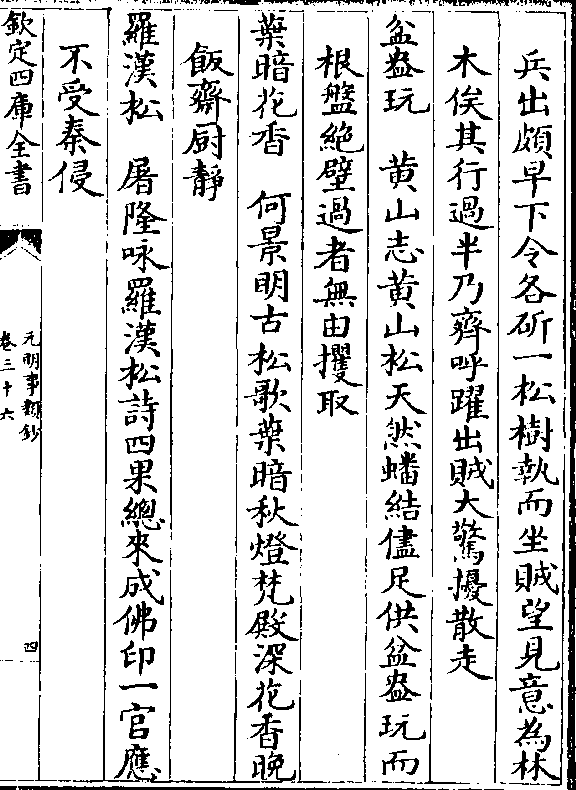 兵出頗早下令各斫一松樹執而坐賊望見意為林
木俟其行過半乃齊呼躍出賊大驚擾散走
盆盎玩　黄山志黄山松天然蟠結儘足供盆盎玩而
根盤絶壁過者無由攫取
葉暗花香　何景明古松歌葉暗秋燈梵殿深花香晚
飯齋厨靜
羅漢松　屠隆咏羅漢松詩四果總來成佛印一官應
不受秦侵
欽定四庫全書
元明事類鈔
卷三十六
四